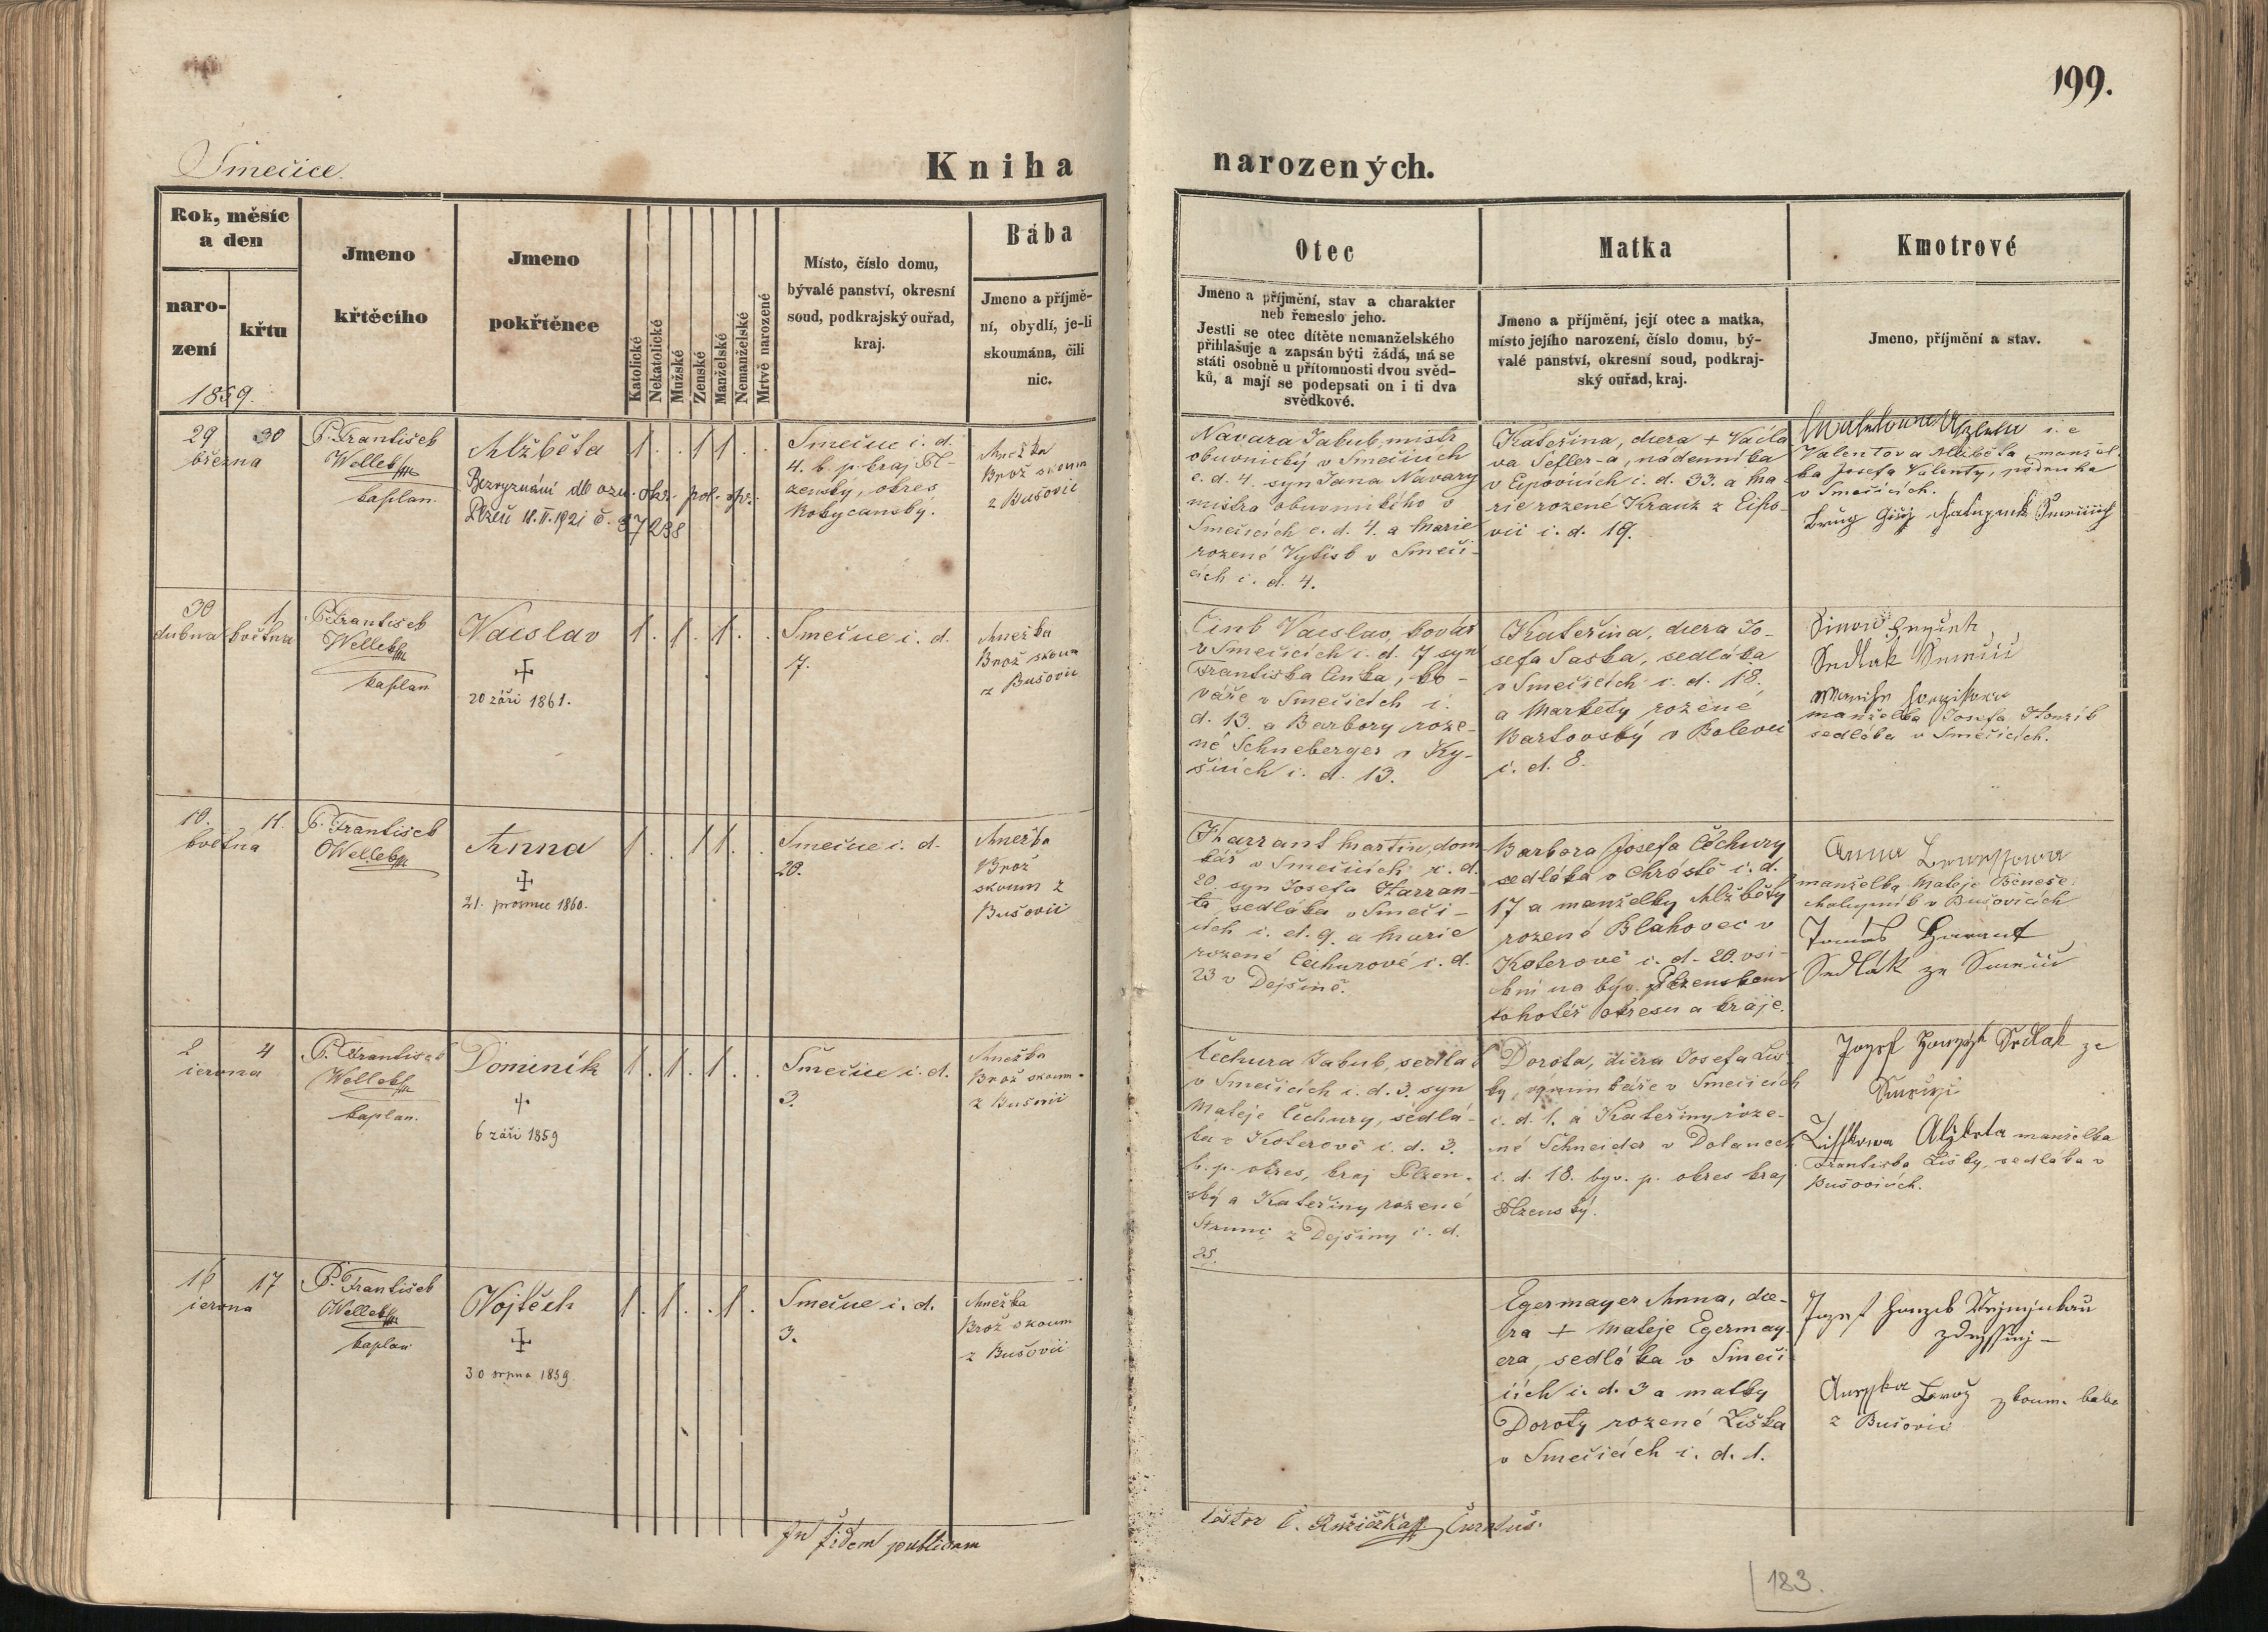 199.
Smečice.
Kniha
narozených.
Rok, měsíc
a den
naro-
zení
křtu
1859.
Jmeno
křtěcího
Jmeno
pokřtěnce
Katolické
Nekatolické
Mužské
Ženské
Manželské
Nemanželské
Mrtvě narozené
Místo, číslo domu,
bývalé panství, okresní
soud, podkrajský ouřad,
kraj.
Bába
Jmeno a příjmě-
ní, obydlí, je-li
skoumána, čili
nic.
Otec
Jmeno a příjmění, stav a charakter
neb řemeslo jeho.
Jestli se otec dítěte nemanželského
přihlašuje a zapsán býti žádá, má se
státi osobně u přítomnosti dvou svěd-
ků, a mají se podepsati on i ti dva
svědkové.
Matka
Jmeno a příjmění, její otec a matka,
místo jejího narození, číslo domu, bý-
valé panství, okresní soud, podkraj-
ský ouřad, kraj.
Kmotrové
Jmeno, příjmění a stav.
29 30
března
P. František
Wellek
kaplan.
Alžběta
Bezvyznání dle ozn. okr. pol. spr.
Plzeň 18.II.1921 č. 37238
1 . . 1 1 . .
Smečice č. d.
4. b. p. kraj Pl-
zenský, okres
Rokycanský.
Anežka
Brož skoum
z Bušovic
Navara Jakub, mistr
obuvnický v Smečicích
č. d. 4. syn Jana Navary
mistra obuvnického v
Smečicích č. d. 4. a Marie
rozené Vytisk v Smeči-
cích č. d. 4.
Kateřina, dcera + Václa
va Sefler-a, nádenníka
v Ejpovicích č. d. 33. a Ma-
rie rozené Kranz z Eipo-
vic č. d. 19.
Valentova Alžběta, manžel-
ka Josefa Valenty, podruha
v Smečicích.
30 1
dubna května
P. František
Wellek
kaplan
Vacslav
20 září 1861.
1 . 1 . 1 . .
Smečice č. d.
7.
Anežka
Brož skoum
z Bušovic
Cink Vacslav, kovář
v Smečicích č. d. 7 syn
Františka Cinka, ko-
váře v Smečicích č.
d. 13. a Barbory roze-
né Schneberger v Ky-
šicích č. d. 13.
Kateřina, dcera Jo-
sefa Saska, sedláka
v Smečicích č. d. 18.
a Markéty rozené
Bartovský v Bolevci
č. d. 8.
Sedlak Smečic
manželka Josefa Honzík
sedláka v Smečicích.
10. 11.
května
P. František
Wellek
Anna
21. prosince 1860.
1 . . 1 1 . .
Smečice č. d.
20.
Anežka
Brož
skoum z
Bušovic
Harrant Martin, dom
kář v Smečicích č. d.
20. syn Josefa Harran-
ta sedláka v Smeči-
cích č. d. 9. a Marie
rozené Čechurové č. d.
23 v Dejšině.
Barbora Josefa Čechury
sedláka v Chrástě č. d.
17 a manželky Alžběty
rozené Blahovec v
Koterově č. d. 20. vsi-
chni na býv. p. Plzenskem
tohotéž okresu a kraje.
manželka Mateje Beneše
chalupník v Bušovicích
Tomáš Harant
Sedlák ze Smečic
2 4
června
P. František
Wellek
kaplan.
Dominik
6 září 1859
1 . 1 . 1 . .
Smečice č. d.
3.
Anežka
Brož skoum.
z Bušovic
Čechura Jakub, sedlák
v Smečicích č. d. 3. syn
Mateje Čechury, sedlá-
ka v Koterově č. d. 3.
b. p. okres, kraj Plzen-
ský a Kateřiny rozené
z Dejšiny č. d.
25.
Dorota, dcera Josefa Liš
ky, výminkáře v Smečicích
č. d. 1. a Kateřiny roze-
né Schneider v Dolanech
č. d. 18. byv. p. okres kraj
Plzenský.
Sedlak ze
Smečic
Lisskowa Alžbeta manželka
Františka Lišky, sedláka v
Bušovicích.
16 17
června
P. František
Wellek
kaplan
Vojtěch
30 srpna 1859
1 . 1 . . 1 .
Smečice č. d.
3.
Anežka
Brož skoum
z Bušovic
Egermayer Anna, dce-
ra + Mateje Egermay-
era, sedláka v Smeči
cích č. d. 3 a matky
Doroty rozené Liška
v Smečicích č. d. 1.
Anesska Brož zkoum. baba
z Bušovic
In fidem publicam
C. Ružička Curatus.
183.